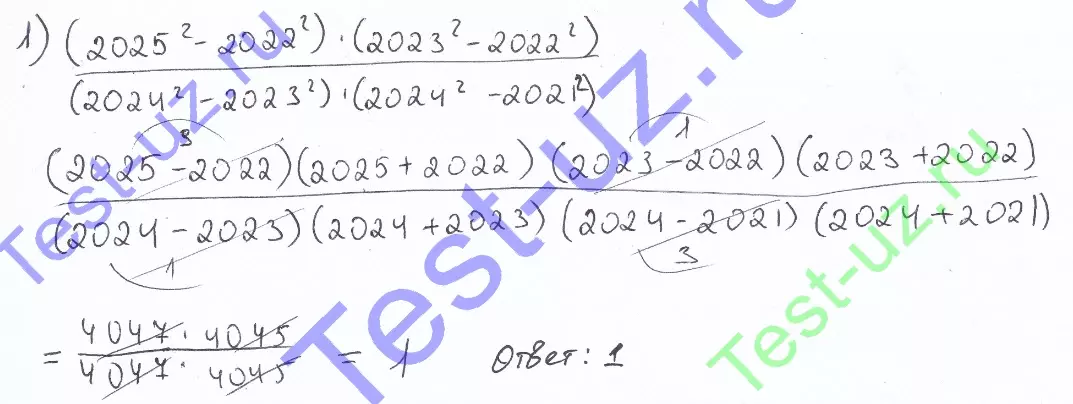 1) (2025² - 2022²) · (2023² - 2022²)
(2024² - 2023²) · (2024² - 2021²)
3 1
(2025 - 2022)(2025 + 2022) (2023 - 2022) (2023 + 2022)
(2024 - 2023) (2024 + 2023) (2024 - 2021) (2024 + 2021)
1 3
4047 · 4045
= = 1 Ответ: 1
4047 · 4045
Test-uz.ru
Test-uz.ru
Test-uz.ru